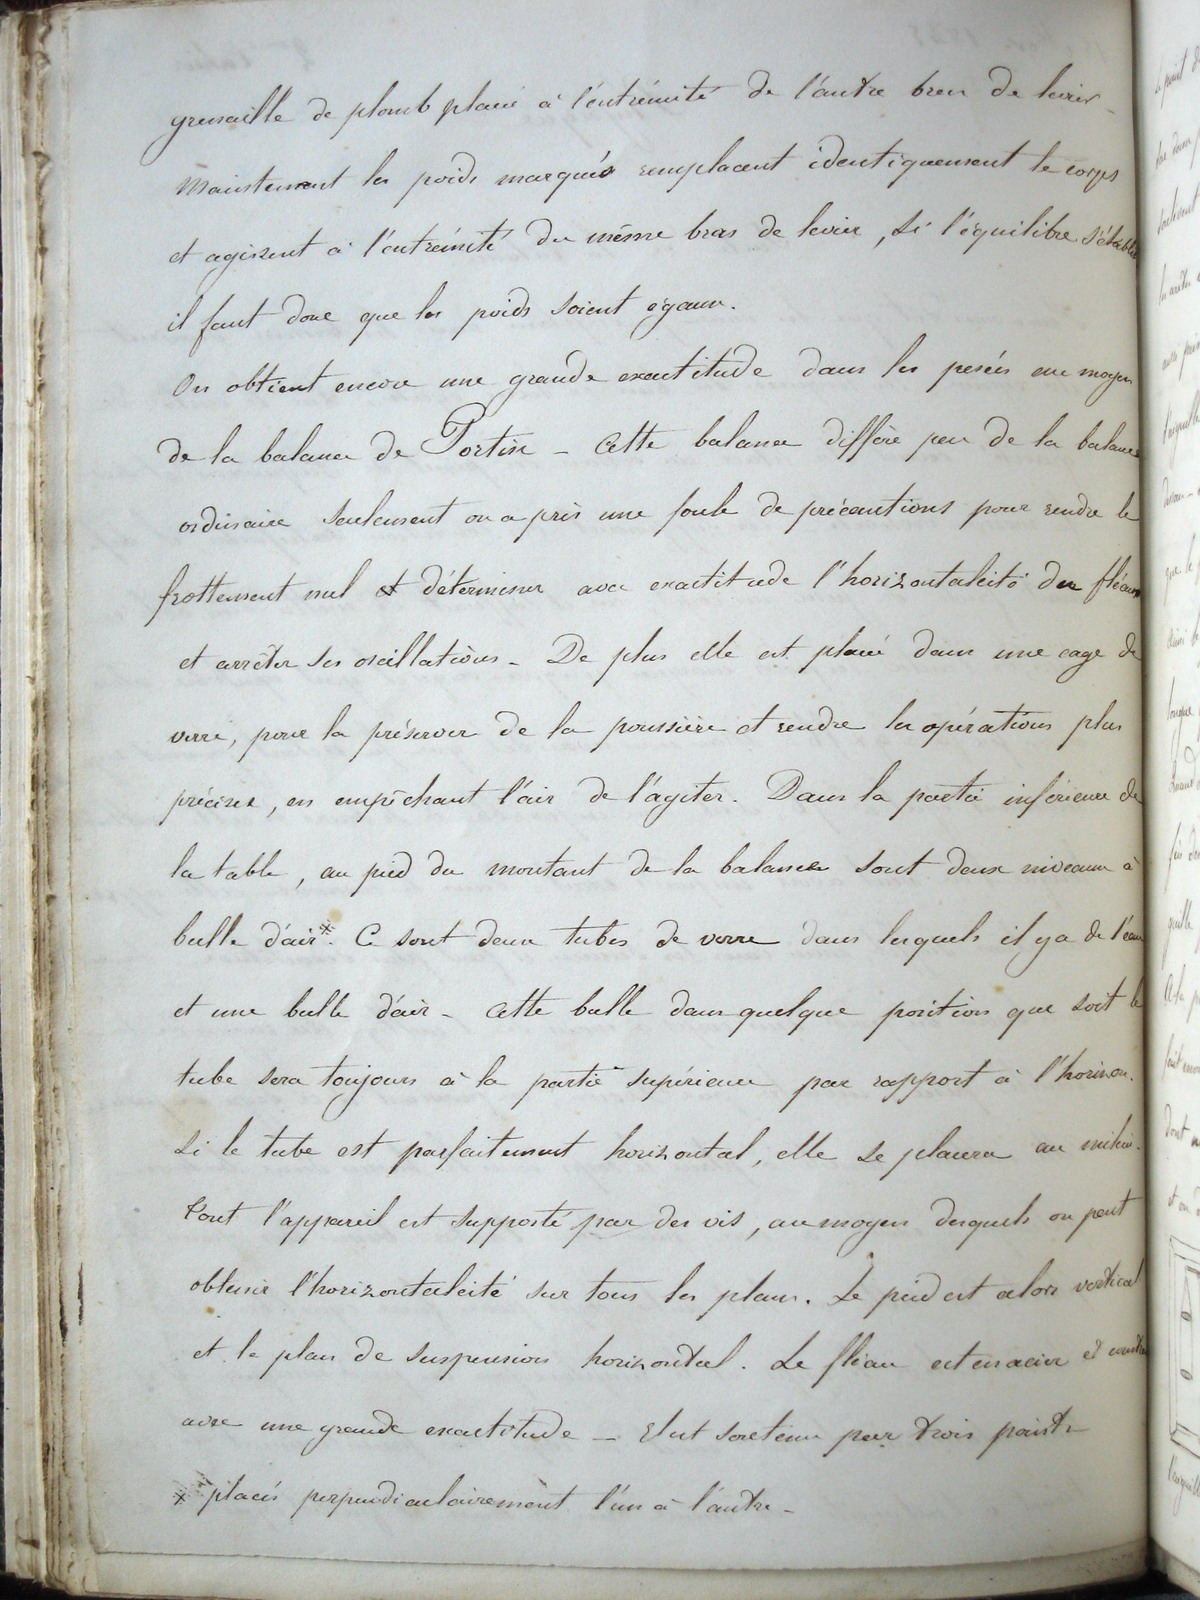 grenaille de plomb placée à l'extrémité de l'autre bras de levier
Maintenant les poids marqués remplacent identiquement le corps
et agissent à l'extrémité du même bras de levier, si l'équilibre s'établit
il faut donc que les poids soient égaux.
On obtient encore une grande exactitude dans les pesées au moyen
de la balance de Fortin - Cette balance diffère peu de la balance
ordinaire seulement on a pris une foule de précautions pour rendre le
frottement nul et déterminer avec exactitude l'horizontaleité du fléau
et arrêter ses oscillations - De plus elle est placée dans une cage de
verre, pour la préserver de la poussière et rendre les opérations plus
précises, en empêchant l'air de l'agiter. Dans la partie inférieure de
la table, au pied du montant de la balance sont deux niveaux à
bulle d'air*. Ce sont deux tubes de verre dans lesquels il y a de l'eau
et une bulle d'air - Cette bulle dans quelque position que soit le
tube sera toujours à la partie supérieure par rapport à l'horizon.
Si le tube est parfaitement horizontal, elle se placera au milieu.
Tout l'appareil est supporté par des vis, au moyen desquels on peut
obtenir l'horizontaleité sur tous les plans. Le pied est alors vertical
et le plan de suspension horizontal. Le fléau est en acier et construit
avec une grande exactitude - Il est soutenu par trois points
* placés perpendiculairement l'un à l'autre -